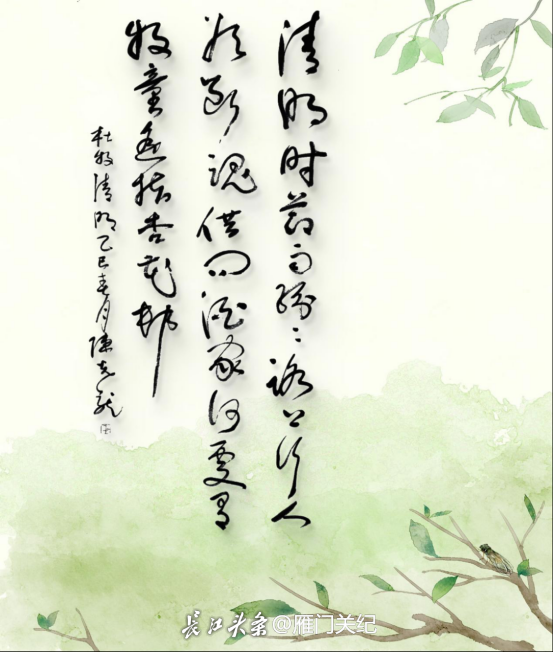 清明时节雨纷纷路上行人
欲断魂借问酒家何处有
牧童遥指杏花邨
杜牧清明乙巳春月陈克龙
长江头条@雁门关纪